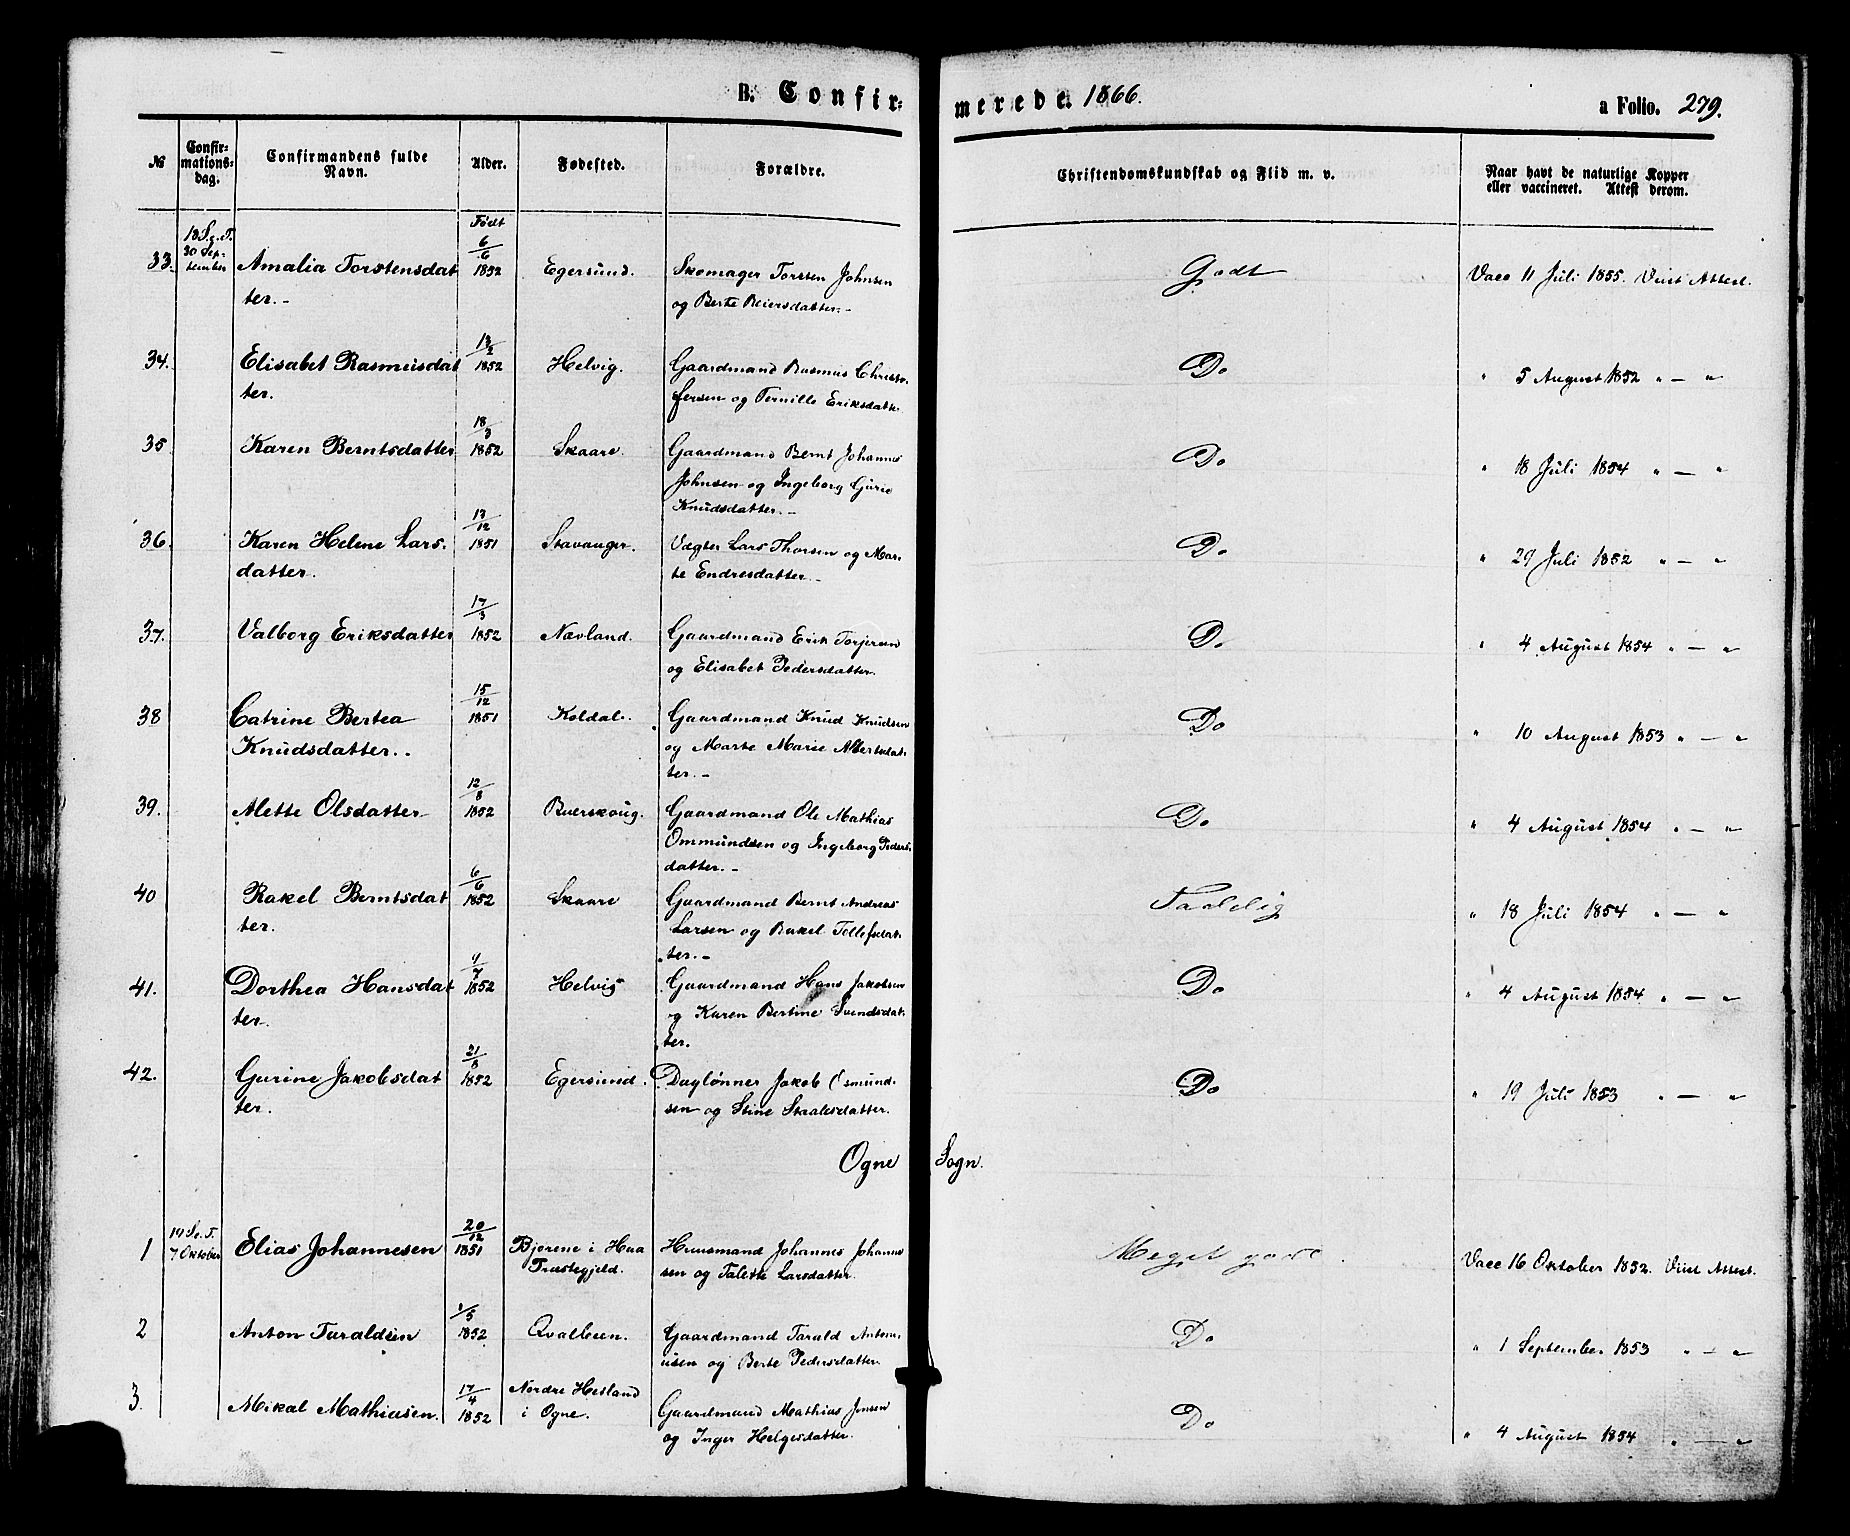 B. Confirmerede. 1866. a Folio. 279.
№ Confirmationsdag. Confirmandens fulde Navn. Alder. Fødested. Forældre. Christendomskundskab og Flid m. v. Naar havt de naturlige Kopper eller vaccineret. Attest derom.
Født
18 S. e. T. 30 September
33. Amalia Torstensdat 6/6 1852 Egersund. Skomager Torsten Johnsen Godt Vacc 11 Juli 1855. Viist Attest.
ter.- og Berte Reiersdatter.-
34. Elisabet Rasmusdat 13/2 1852 Helvig. Gaardmand Rasmus Christo- Do " 5 August 1852 " — "
ter. fersen og Pernille Eriksdatter
35 Karen Berntsdatter 18/3 1852 Skaare. Gaardmand Bernt Johannes Do " 18 Juli 1854 " — "
Johnsen og Ingeborg Gurie
Knudsdatter.-
36. Karen Helene Lars- 13/12 1851 Stavanger. Vægter Lars Thorsen og Mar- Do " 29 Juli 1852 " — "
datter. te Endresdatter.-
37. Valborg Eriksdatter 17/3 1852 Nævland. Gaardmand Erik Torjersen Do " 4 August 1854 " — "
og Elisabet Pedersdatter.
38 Catrine Bertea 15/12 1851 Koldal. Gaardmand Knud Knudsen Do " 10 August 1853 " — "
Knudsdatter.. og Marte Marie Albertsdat-
ter.-
39. Mette Olsdatter 12/8 1852 Gaardmand Ole Mathias Do " 4 August 1854 " — "
Ommundsen og Ingeborg Peders-
datter.-
40 Rakel Berntsdat 6/6 1852 Skaare Gaardmand Bernt Andreas Taalelig " 18 Juli 1854 " — "
ter. Larsen og Rakel Tollefsdat-
ter.-
41. Dorthea Hansdat 1/7 1852 Helvig Gaardmand Hans Jakobsen Do " 4 August 1854 " — "
ter. og Karen Bertine Svendsdat-
ter.
42. Gurine Jakobsdat 21/8 1852 Egersund. Daglønner Jakob Osmund- Do " 19 Juli 1853 " — "
ter. sen og Stine Staalesdatter.
Ogne Sogn.
19 S. e. T. 7 Oktober
1 Elias Johannesen 20/12 1851 Bjorene i Haa Huusmand Johannes Johanne- Meget godt Vacc 16 Oktober 1852. Viist Attest.
Præstegjeld. sen og Talette Larsdatter.
2 Anton Taraldsen 1/5 1852 Qvalbeen. Gaardmand Tarald Anton- Do " 1 September 1853 " — "
iusen og Berte Pedersdatter
3. Mikal Mathiasen. 17/4 1852 Nordre Hesland Gaardmand Mathias Jensen Do " 4 August 1854 " — "
i Ogne. og Inger Helgesdatter.